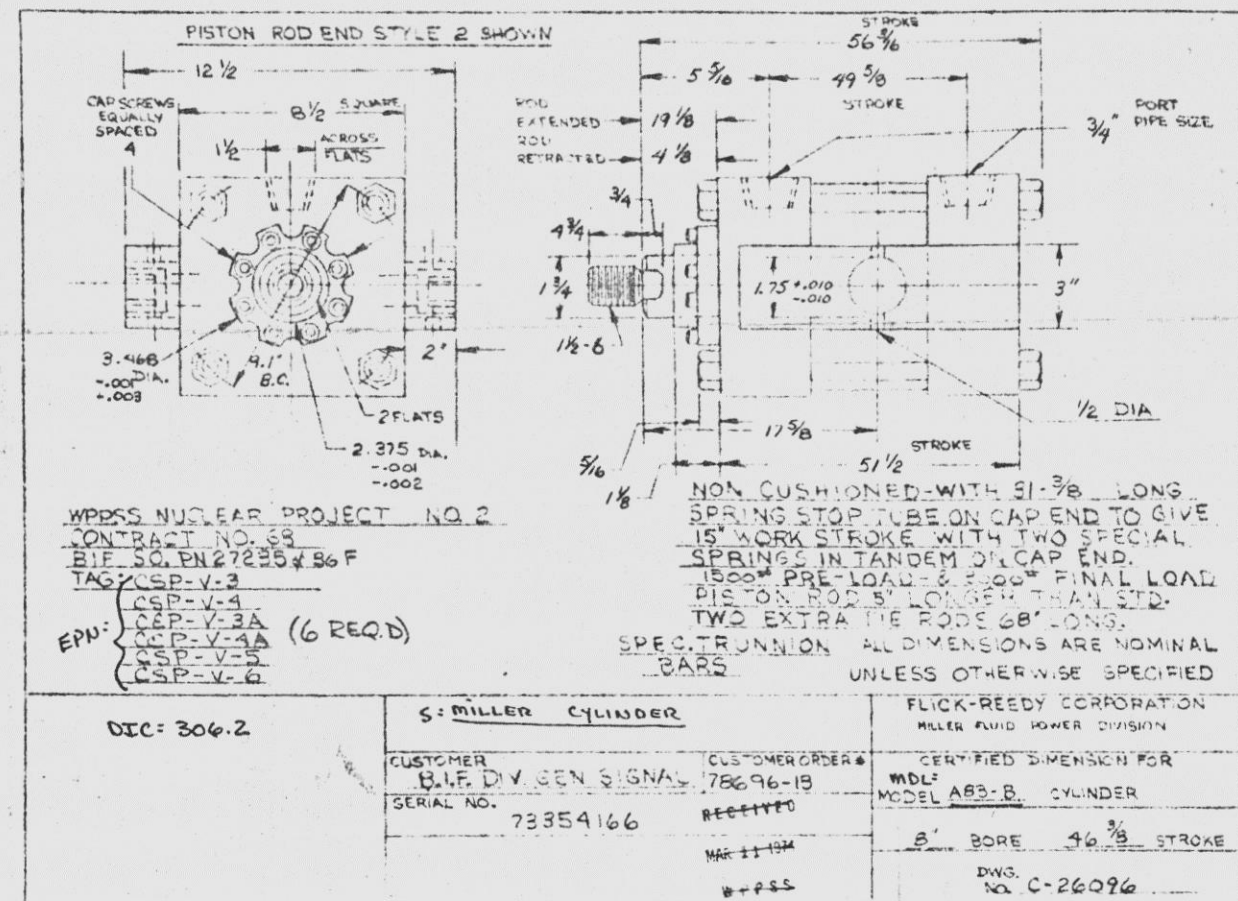 PISTON ROD END STYLE 2 SHOWN
12 1/2
CAP SCREWS
EQUALLY
SPACED
4
8 1/2 SQUARE
1 1/2
ACROSS
FLATS
3.468
-.001 DIA.
-.003
9.1"
B.C.
2"
2 FLATS
2.375 DIA.
-.001
-.002
STROKE
56 3/16
5 5/16
49 5/8
STROKE
ROD
EXTENDED
19 1/8
ROD
RETRACTED
4 1/8
PORT
PIPE SIZE
3/4"
3/4
4 3/4
1 3/4
1.75 +.010
-.010
3"
1 1/2-6
1/2 DIA
17 5/8
STROKE
51 1/2
5/16
1 1/8
WPPSS NUCLEAR PROJECT NO. 2
CONTRACT NO. 68
BIF SO. PN 27235 & 36 F
TAG: CSP-V-3
CSP-V-4
CEP-V-3A
CEP-V-4A
CSP-V-5
CSP-V-6
EPN:
(6 REQ.D)
NON CUSHIONED-WITH 31-3/8 LONG
SPRING STOP TUBE ON CAP END TO GIVE
15" WORK STROKE WITH TWO SPECIAL
SPRINGS IN TANDEM ON CAP END.
1500# PRE-LOAD - & FINAL LOAD
PISTON ROD 5" LONGER THAN STD.
TWO EXTRA TIE RODS 68" LONG.
SPEC. TRUNNION
BARS
ALL DIMENSIONS ARE NOMINAL
UNLESS OTHERWISE SPECIFIED
DIC= 306.2
S: MILLER CYLINDER
CUSTOMER
B.I.F. DIV. GEN SIGNAL
CUSTOMER ORDER #
78696-13
SERIAL NO.
73354166
RECEIVED
MAR 11 1974
WPPSS
FLICK-REEDY CORPORATION
MILLER FLUID POWER DIVISION
CERTIFIED DIMENSION FOR
MDL:
MODEL A83-B CYLINDER
8" BORE 46 3/8 STROKE
DWG.
NO. C-26096